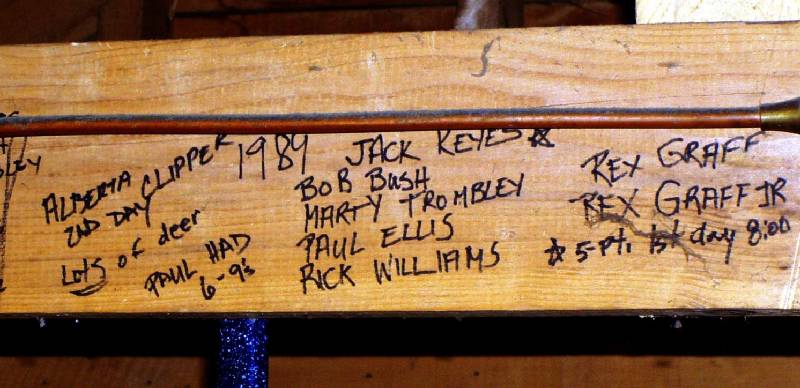 ALBERTA CLIPPER
2ND DAY
Lots of deer
PAUL HAD
6-9's
1989
JACK KEYES ☆
BOB BUSH
MARTY TROMBLEY
PAUL ELLIS
RICK WILLIAMS
REX GRAFF
REX GRAFF JR
☆ 5-pt. 1st day 8:00